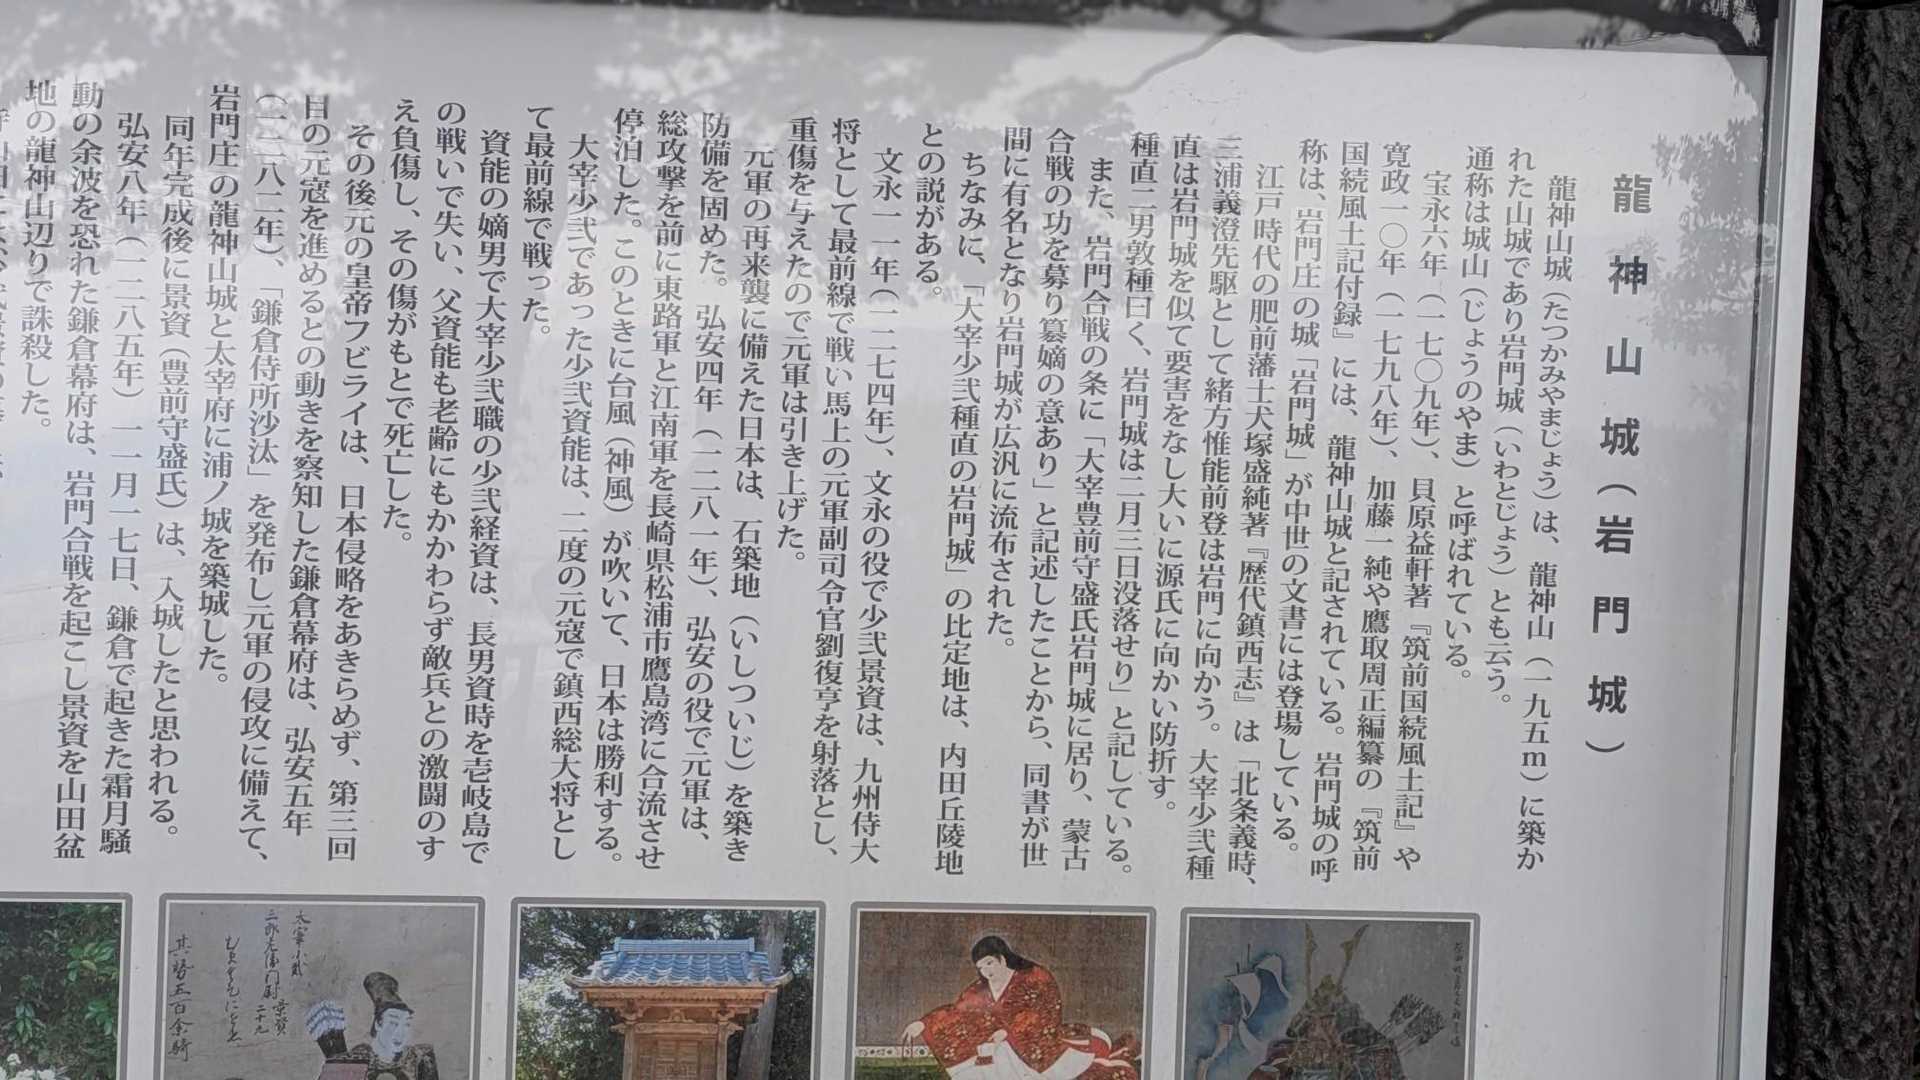 龍神山城（岩門城）
龍神山城（たつかみやまじょう）は、龍神山（一九五ｍ）に築か
れた山城であり岩門城（いわとじょう）とも云う。
通称は城山（じょうのやま）と呼ばれている。
宝永六年（一七〇九年）、貝原益軒著『筑前国続風土記』や
寛政一〇年（一七九八年）、加藤一純や鷹取周正編纂の『筑前
国続風土記付録』には、龍神山城と記されている。岩門城の呼
称は、岩門庄の城「岩門城」が中世の文書には登場している。
江戸時代の肥前藩士犬塚盛純著『歴代鎮西志』は「北条義時、
三浦義澄先駆として緒方惟能前登は岩門に向かう。大宰少弐種
直は岩門城を似て要害をなし大いに源氏に向かい防折す。
種直二男敦種曰く、岩門城は二月三日没落せり」と記している。
また、岩門合戦の条に「大宰豊前守盛氏岩門城に居り、蒙古
合戦の功を募り簒嫡の意あり」と記述したことから、同書が世
間に有名となり岩門城が広汎に流布された。
ちなみに、「大宰少弐種直の岩門城」の比定地は、内田丘陵地
との説がある。
文永一一年（一二七四年）、文永の役で少弐景資は、九州侍大
将として最前線で戦い馬上の元軍副司令官劉復亨を射落とし、
重傷を与えたので元軍は引き上げた。
元軍の再来襲に備えた日本は、石築地（いしついじ）を築き
防備を固めた。弘安四年（一二八一年）、弘安の役で元軍は、
総攻撃を前に東路軍と江南軍を長崎県松浦市鷹島湾に合流させ
停泊した。このときに台風（神風）が吹いて、日本は勝利する。
大宰少弐であった少弐資能は、二度の元寇で鎮西総大将とし
て最前線で戦った。
資能の嫡男で大宰少弐職の少弐経資は、長男資時を壱岐島で
の戦いで失い、父資能も老齢にもかかわらず敵兵との激闘のす
え負傷し、その傷がもとで死亡した。
その後元の皇帝フビライは、日本侵略をあきらめず、第三回
目の元寇を進めるとの動きを察知した鎌倉幕府は、弘安五年
（一二八二年）、「鎌倉侍所沙汰」を発布し元軍の侵攻に備えて、
岩門庄の龍神山城と太宰府に浦ノ城を築城した。
同年完成後に景資（豊前守盛氏）は、入城したと思われる。
弘安八年（一二八五年）一一月一七日、鎌倉で起きた霜月騒
動の余波を恐れた鎌倉幕府は、岩門合戦を起こし景資を山田盆
地の龍神山辺りで誅殺した。
太宰少貳
三郎左衛門尉
景資
二十九
其勢五百余騎